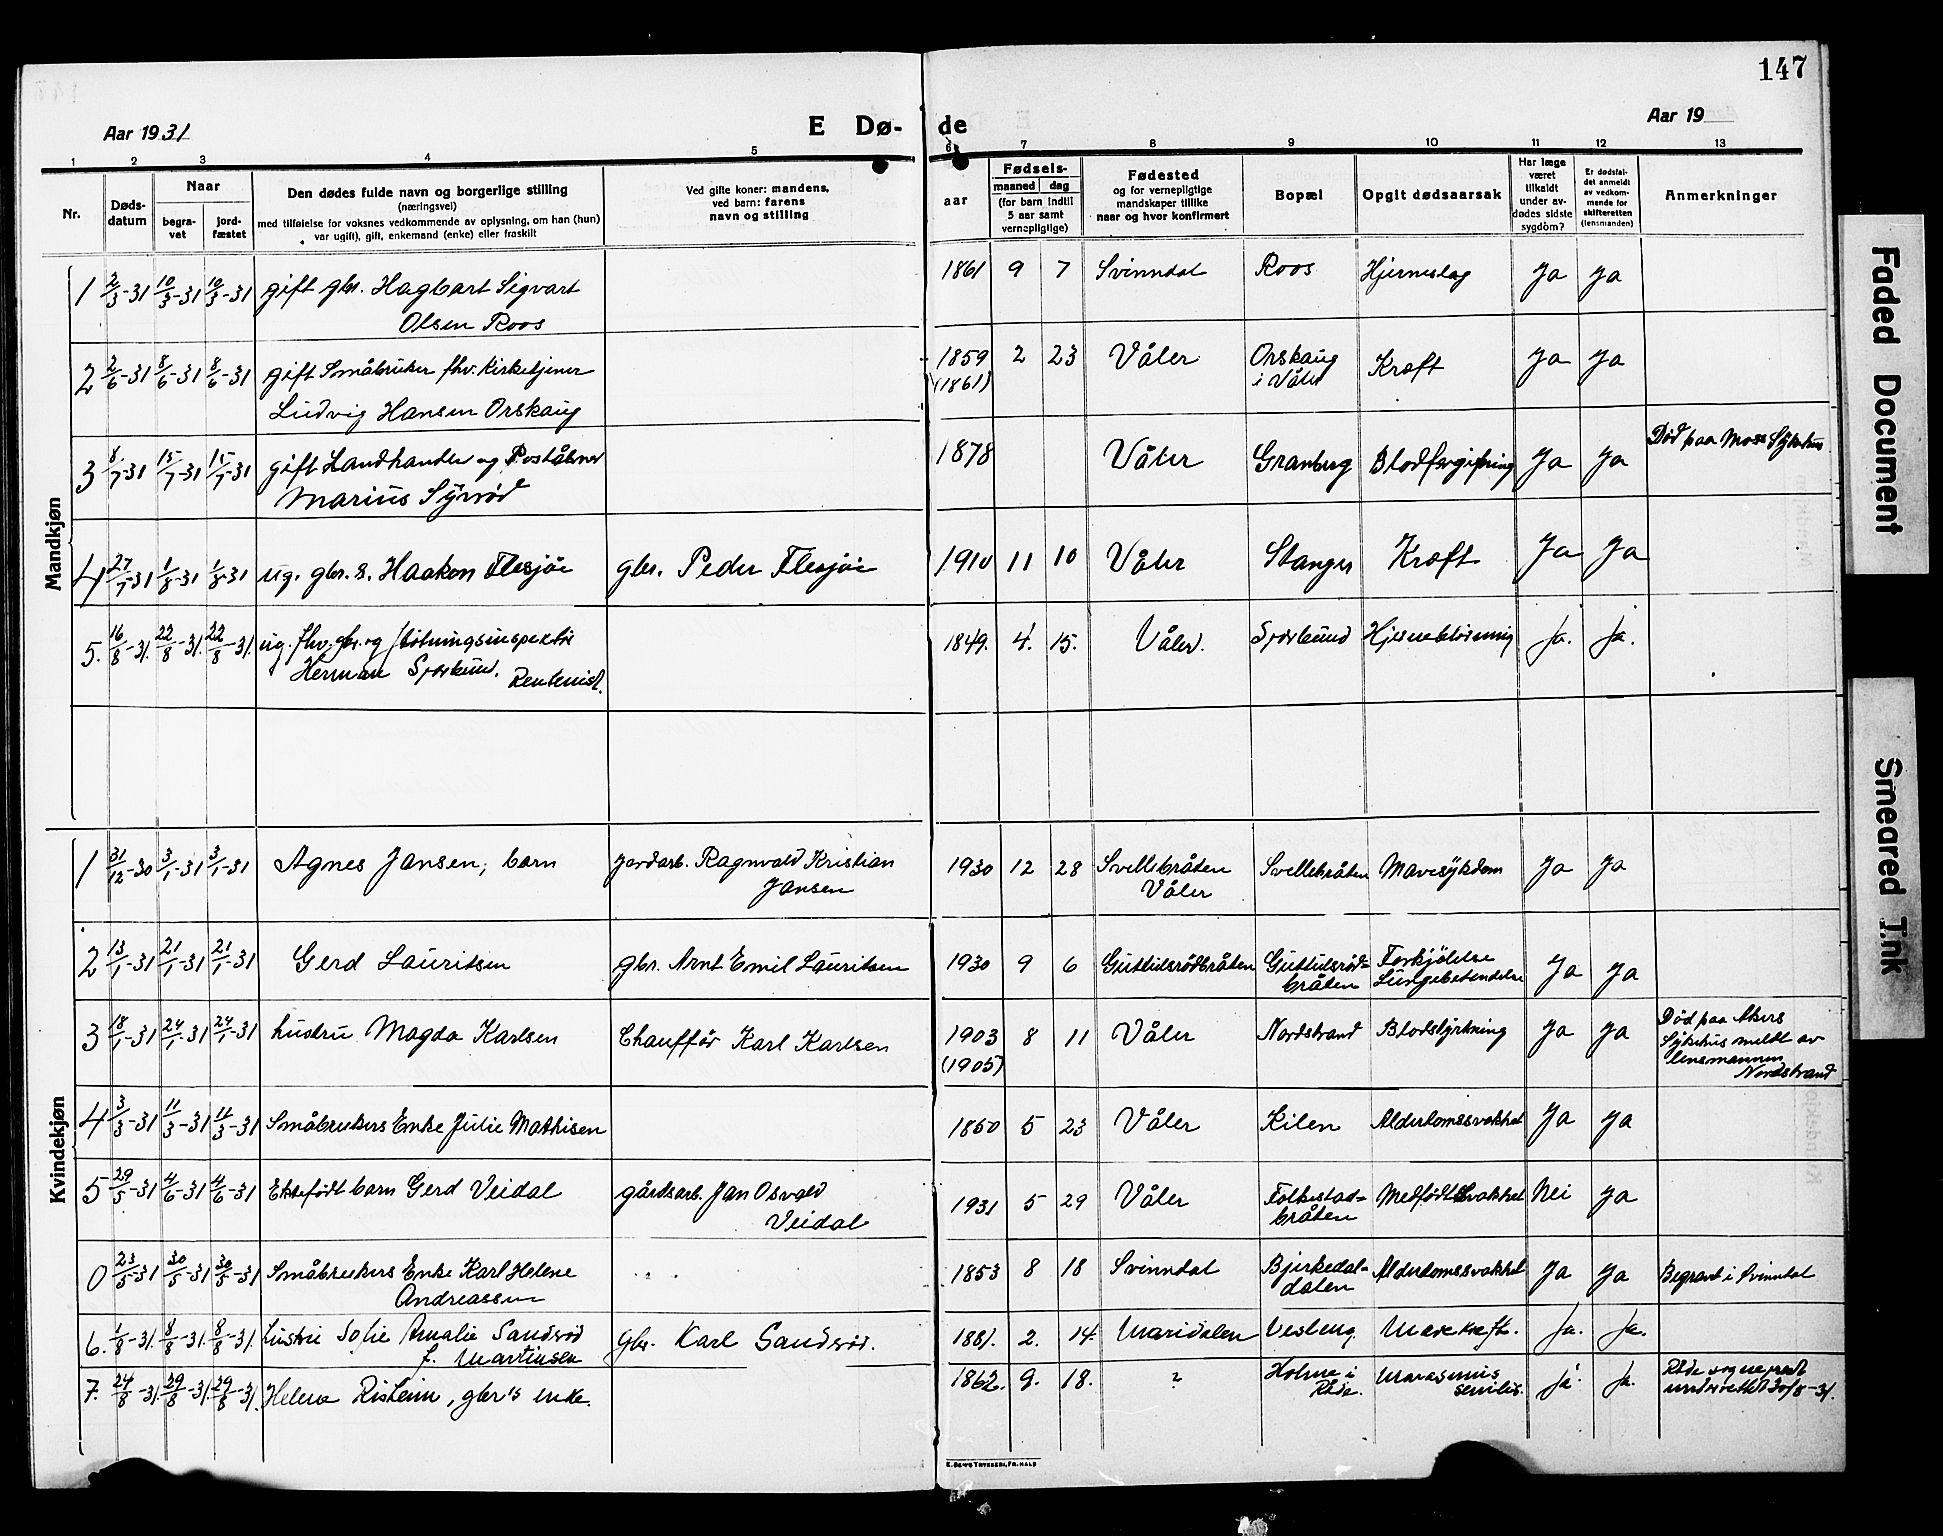 147
Aar 1931
E Dø-
de
Aar 19
1 2 3 4 5 6 7 8 9 10 11 12 13
Nr.
Døds-
datum
Naar
begra-
vet
jord-
fæstet
Den dødes fulde navn og borgerlige stilling
(næringsvei)
med tilføielse for voksnes vedkommende av oplysning, om han (hun)
var ugift, gift, enkemand (enke) eller fraskilt
Ved gifte koner: mandens,
ved barn: farens
navn og stilling
aar
Fødsels-
maaned dag
(for barn indtil
5 aar samt
vernepligtige)
Fødested
og for vernepligtige
mandskaper tillike
naar og hvor konfirmert
Bopæl
Opgit dødsaarsak
Har læge
været
tilkaldt
under av-
dødes sidste
sygdom?
Er dødsfal-
det anmeldt
av vedkom-
mende for
skifteretten
(lensmanden)
Anmerkninger
Mandkjøn
1 2/3-31 10/3-31 10/3-31 gift gbr. Hagbart Sigvart
Olsen Roos
1861 9 7 Svinndal Roos Hjerneslag Ja Ja
2 2/6-31 8/6-31 8/6-31 gift Småbruker fhv. Kirketjener
Ludvig Hansen Orskaug
1859 2 23 Våler Orskaug Kræft Ja Ja
(1861) i Våler
3 8/7-31 15/7-31 15/7-31 gift Landhandler og Poståbner
Marius Syrrød
1878 Våler Granberg Blodforgiftning Ja Ja Død paa Moss Sykehus
4 27/7-31 1/8-31 1/8-31 ug. gbr. s. Haakon Flesjøe gbr. Peder Flesjøe
1910 11 10 Våler Stanger Kræft Ja Ja
5. 16/8-31. 22/8-31. 22/8-31. ug. fhv. gbr. og fløtningsinspektør
Herman Sperbund. Rentenist.
1849. 4. 15. Våler. Sperbund Hjerneblødning Ja. Ja.
Kvindekjøn
1 31/12-30 3/1-31 3/1-31 Agnes Jansen, barn jordarb. Ragnvald Kristian
Jansen
1930 12 28 Svellebråten Svellebråten Mavesykdom Ja Ja
Våler
2 13/1-31 21/1-31 21/1-31 Gerd Lauritsen gbr. Arnt Emil Lauritsen
1930 9 6 Guttulsrødbråten Guttulsrød= Forkjølelse Ja Ja
bråten Lungebetendelse
3 18/1-31 24/1-31 24/1-31 hustru Magda Karlsen Chauffør Karl Karlsen
1903 8 11 Våler Nordstrand Blodstyrtning Ja Ja Død paa Akers
(1905) Sykehus meldt av
lensmannen
Nordstrand
4 3/3-31 11/3-31 11/3-31 Småbrukers Enke Julie Mathisen
1850 5 23 Våler Kilen Alderdomssvakhet Ja Ja
5 29/5-31 4/6-31 4/6-31 Ektefødt barn Gerd Veidal gårdsarb. Jan Osvald
Veidal
1931 5 29 Våler Folkestad= Medfødt Svakhet Nei Ja
bråten
0 23/5-31 30/5-31 30/5-31 Småbrukers Enke Karl Helene
Andreassen
1853 8 18 Svinndal Bjerkedal= Alderdomssvakhet Ja Ja Begravet i Svinndal
dalen
6. 1/8-31. 8/8-31. 8/8-31. Hustru Sofie Amalie Sandsrød
f. Martinsen
Gbr. Karl Sandsrød.
1881. 2. 14. Maridalen Vesteng. Mavekræft. Ja. Ja.
7. 24/8-31. 29/8-31. 29/8-31. Helene Risheim, gbr's enke.
1862. 9. 18. ? Holme i Marasmus Ja. Ja. Råde sogneprest
Råde. senilis. underrettet 30/8-31.
E. Sem's Trykkeri, Fr.hald
Faded Document
Smeared Ink